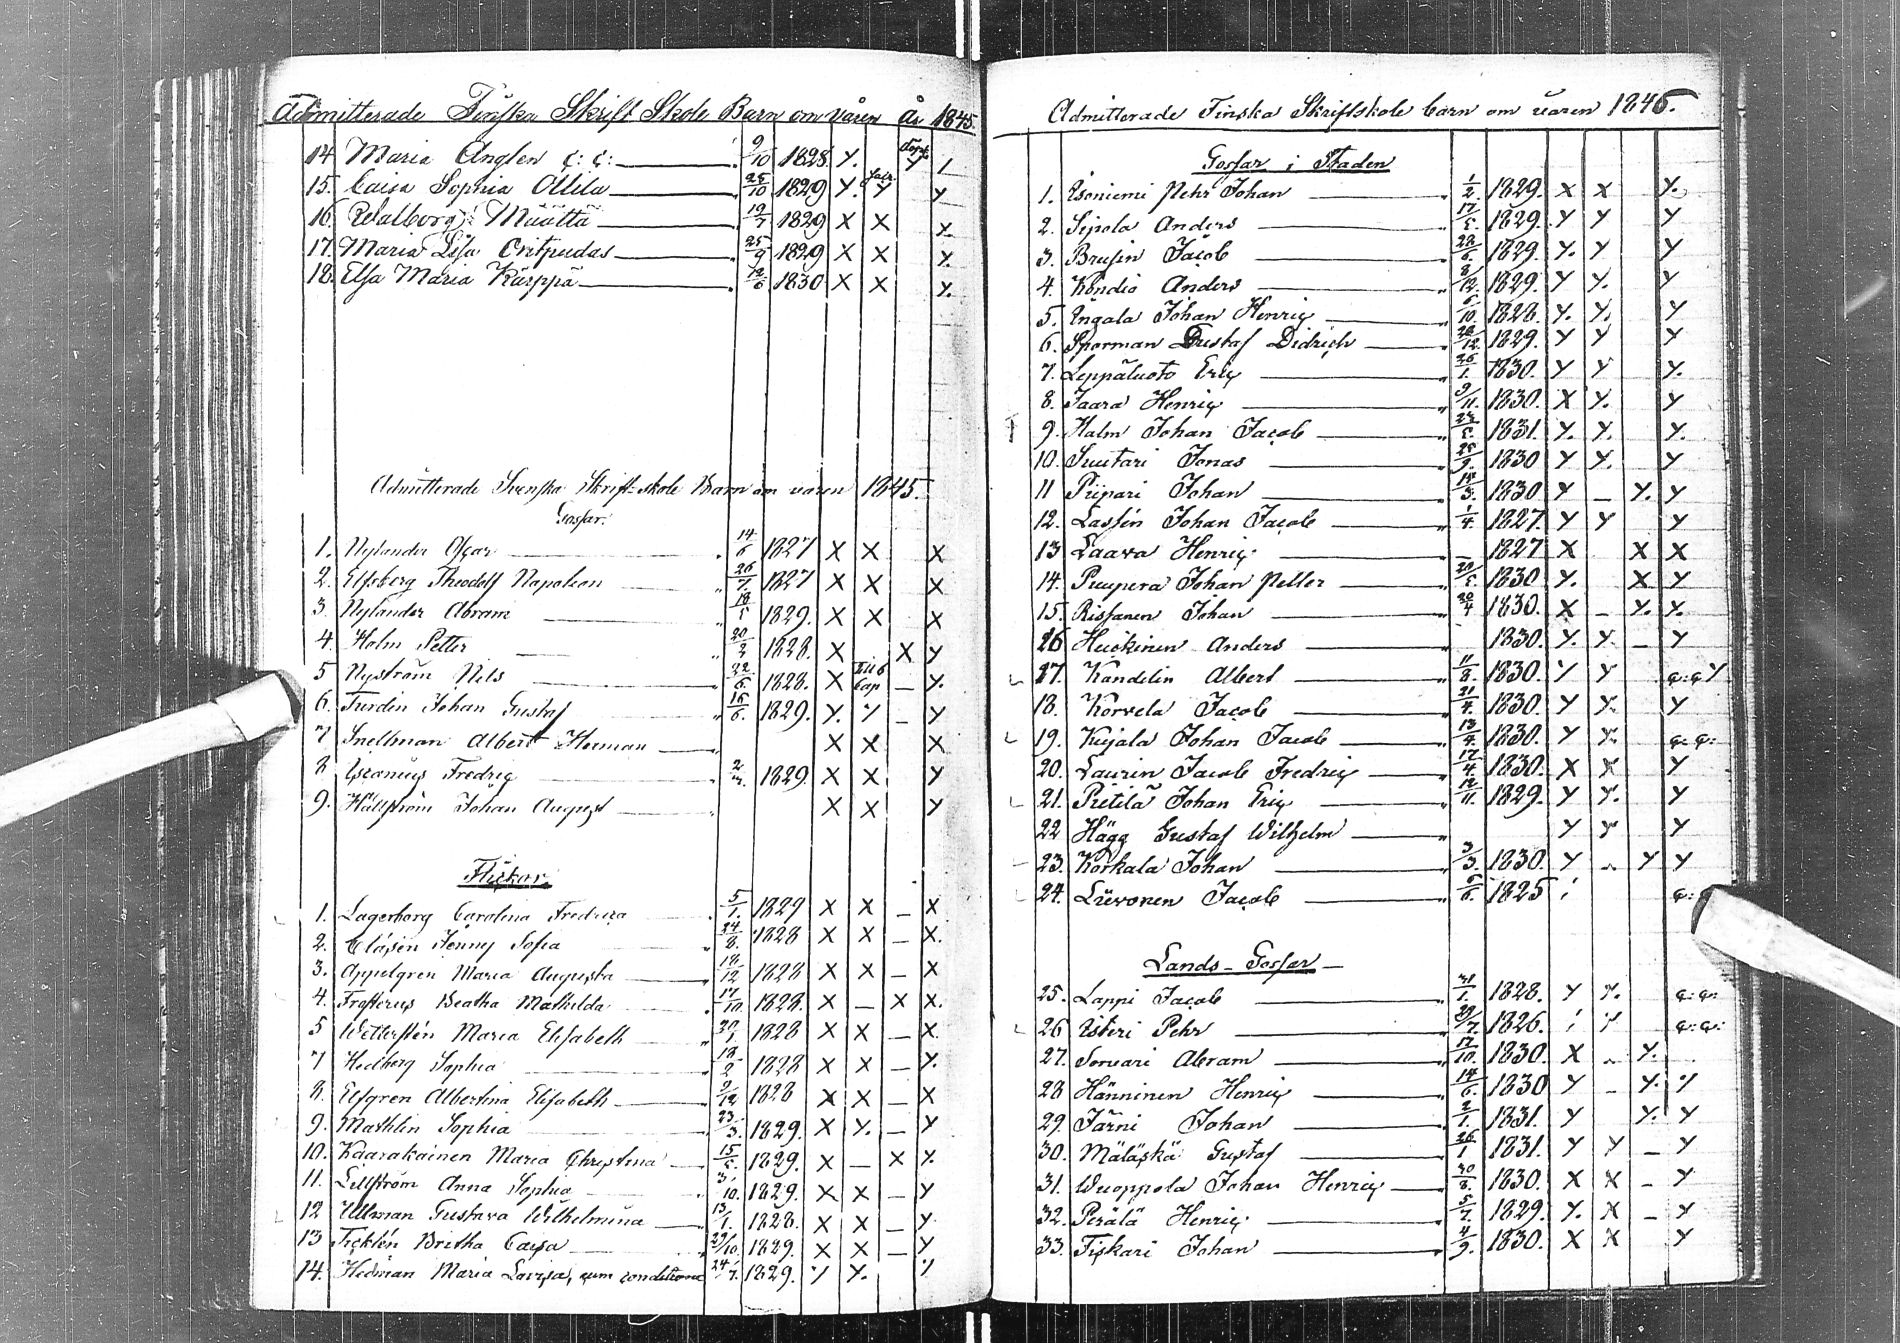 Admitterade Finska Skrift Skole Barn om våren År 1845.
14 Maria Anglen ç: ç: 9/10 1828 Y. Y 1
15. Caisa Sophia Ollila 25/10 1829 Y. Y Y
16. Walborg Määttä 19/7 1829 X X Y.
17. Maria Lisa 25/9 1829 X X Y.
18. Elsa Maria Kärppä 12/6 1830 X X Y.
Admitterade Svenska Skrift-skole Barn om våren 1845.
Gossar.
1. Nylander Oscar 14/6 1827 X X X
2. Elfsberg Theodolf Napoleon 26/7. 1827 X X X
3. Nylander Abram 18/5 1829. X X X
4. Holm Petter 20/2 1828. X X Y
5 Nyström Nils 22/6. 1828. X Till 6 Cap – Y.
6. Turdin Johan Gustaf 16/6. 1829. Y. Y – Y
7 Snellman Albert Herman X X X
8 Fredric 2/2. 1829. X X Y
9. Hällström Johan August X X Y
Flickor.
1. Lagerborg Carolina Fredrica 5/1. 1829 X X – X
2. Clasén Jenny Sofia 24/8. 1828 X X – X.
3. Appelgren Maria Augusta 18/12 1828 X X – X
4. Frosterus Beatha Mathilda 17/10. 1828. X – X X.
5 Wettersten Maria Elisabeth 1828 X X – X.
7 Hedberg Sophia 18/2 1828 X X – Y.
8. Elfgren Albertina Elisabeth 9/12 1828 X X – X
9. Mathlin Sophia 23/3. 1829. X Y. – Y
10. Kaarakainen Maria Christina 15/5. 1829. X – X Y.
11. Lillström Anna Sophia 3/10. 1829. X X – Y
12 Ullman Gustava Wilhelmina 13/1. 1828. X X – Y
13 Ticklén Britha Caisa 29/10. 1829. X X – Y
14. Hedman Maria Lovisa, cum conditione 24/7. 1829. Y Y. Y
Admitterade Finska Skriftskole barn om våren 1846.
Gossar i Staden
1. Isoniemi Pehr Johan 1/2. 1829. X X Y.
2. Sipola Anders 17/5. 1829. Y Y Y
3. Brusin Jacob 28/6. 1829. Y. Y Y
4. Köndiö Anders 8/12. 1829. Y Y. Y
5. Ingala Johan Henric 6/10. 1828. Y. Y. Y
6. Sporman Gustaf Didrich 28/12. 1829. Y Y Y
7. Leppäluoto Eric 26/1. 1830. Y Y Y.
8. Jaara Henric 9/11. 1830. X Y. Y
9. Halm Johan Jacob 1831. Y. Y. Y.
10. Suutari Jonas 25/9. 1830 Y Y. Y
11 Piipari Johan 14/3. 1830 Y – Y. Y
12. Lassén Johan Jacob 1/4. 1827. Y Y Y
13 Laava Henric – 1827 X X X
14. Puupera Johan Petter 20/5. 1830 Y. X Y
15. Rissanen Johan 30/4 1830. X – Y. Y.
26 Huskinen Anders 1830. Y. Y. – Y
27. Kandelin Albert 11/8. 1830. Y Y ç: ç Y
18. Korvela Jacob 21/4. 1830. Y Y. Y
19. Kujala Johan Jacob 13/4. 1830. Y Y. ç: ç:
20. Laurin Jacob Fredric 17/4. 1830. X X Y
21. Pietilä Johan Eric 12/11. 1829. Y Y. Y
22 Hägg Gustaf Wilhelm Y Y Y
23. Korkala Johan 3/3. 1830. Y – Y Y
24. Liivonen Jacob 6/6. 1825 / ç:
Lands – Gossar –
25. Lappi Jacob 31/1. 1828. Y Y. ç: ç:
26 Isteri Pehr 29/7. 1826. / Y ç: ç:
27. Soruari Abram 17/10. 1830. X – Y.
28 Hänninen Henric 14/6. 1830 Y – Y. Y
29. Järni Johan 2/1. 1831. Y Y. Y
30. Mäläskä Gustaf 26/1 1831. Y Y – Y
31. Wuoppola Johan Henric 30/8. 1830. X X – Y
32. Perälä Henric 5/7. 1829. Y. X – Y
33. Fiskari Johan 4/9. 1830. X X Y